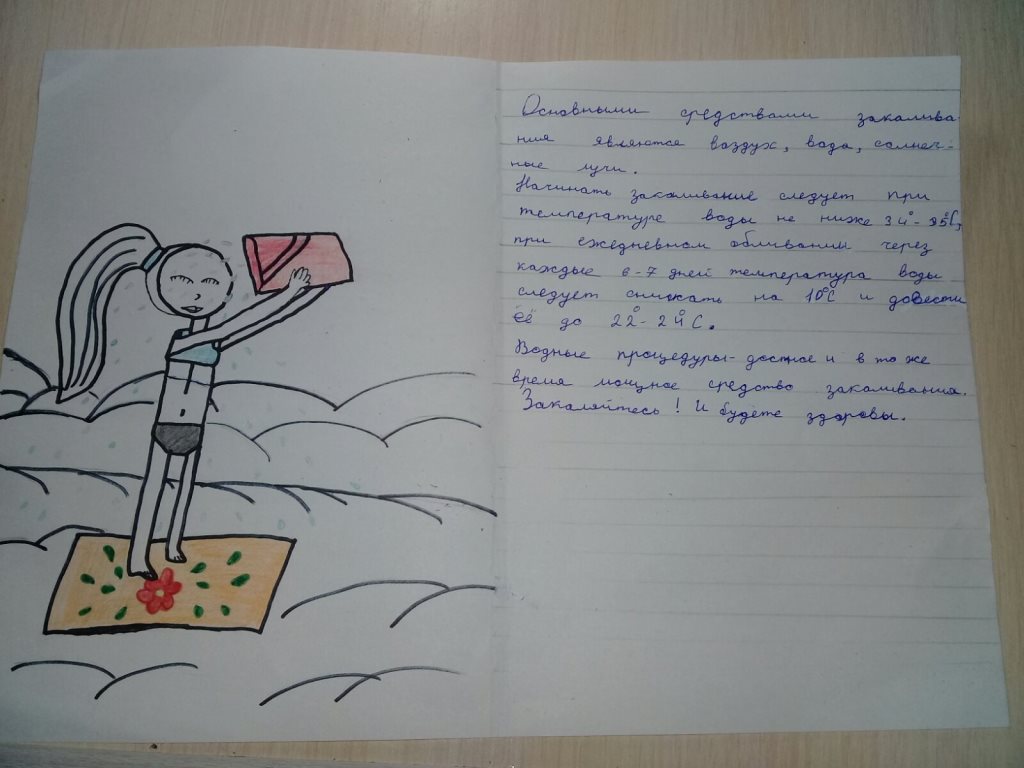 Основными средствами закалива
ния являются воздух, вода, солнеч-
ные лучи.
Начинать закаливание следует при
температуре воды не ниже 34°-35°С,
при ежедневном обливании через
каждые 6-7 дней температура воды
следует снижать на 10°С и довести
её до 22°-24°С.
Водные процедуры- достное и в то же
время мощное средство закаливания.
Закаляйтесь! И будете здоровы.